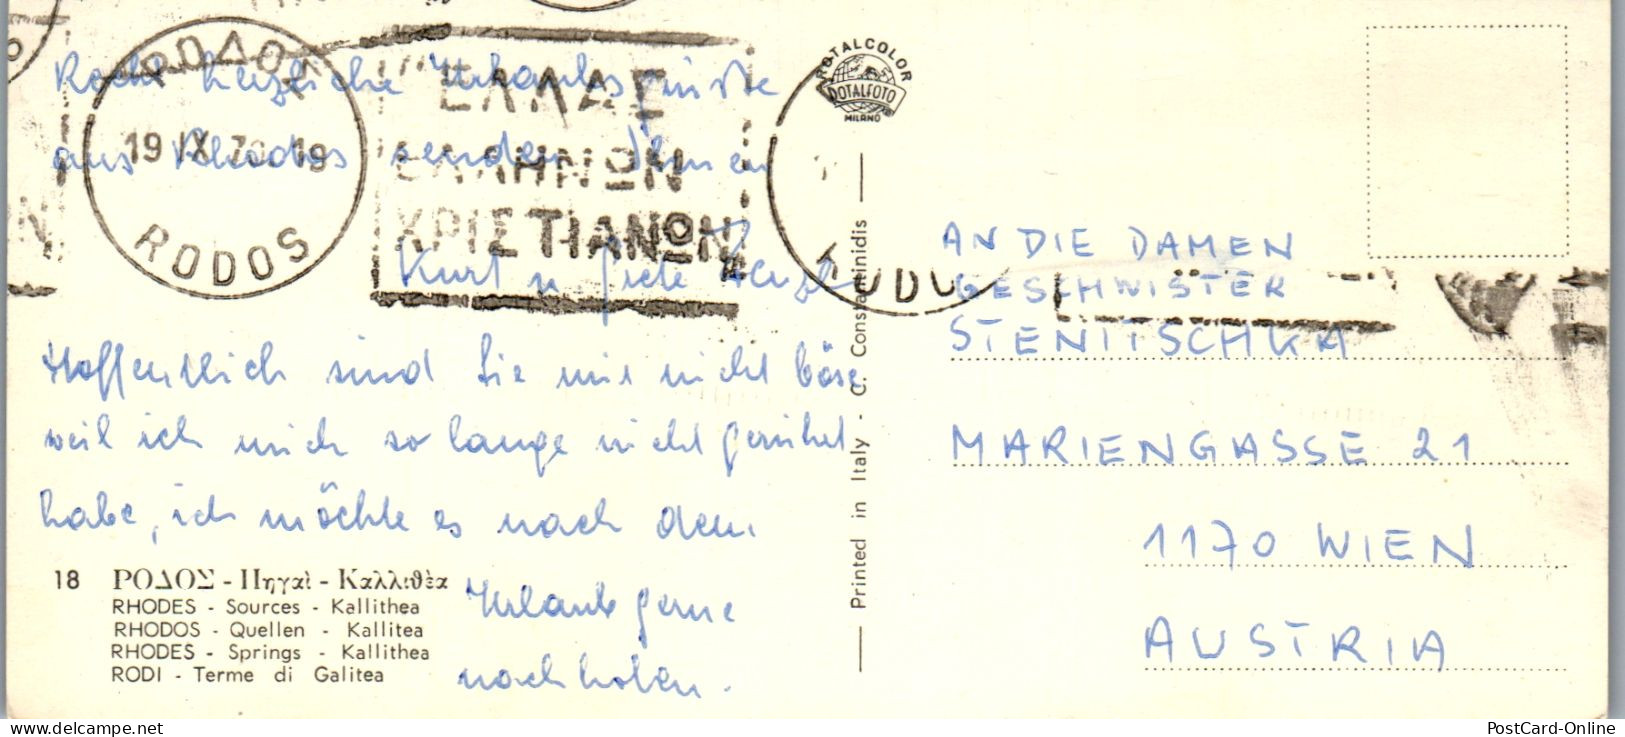 ΡΟΔΟΣ
19 IX 70. 19
RODOS
ΕΛΛΑΣ
ΕΛΛΗΝΩΝ
ΧΡΙΣΤΙΑΝΩΝ
Recht herzliche Urlaubsgrüße
aus Rhodos senden Ihnen
Kurt u
Hoffentlich sind Sie mir nicht böse
weil ich mich so lange nicht gerührt
habe, ich möchte es nach dem
Urlaub gerne
nachholen.
18 ΡΟΔΟΣ - Πηγαὶ - Καλλιθέα
RHODES - Sources - Kallithea
RHODOS - Quellen - Kallitea
RHODES - Springs - Kallithea
RODI - Terme di Galitea
ROTALCOLOR
ROTALFOTO
MILANO
Printed in Italy - C. Constantinidis
AN DIE DAMEN
GESCHWISTER
STENITSCHKA
MARIENGASSE 21
1170 WIEN
AUSTRIA
PostCard-Online